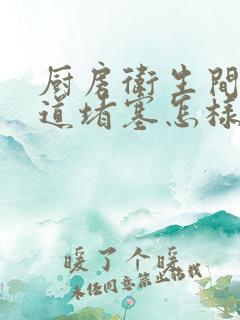 厨房卫生间
道堵塞怎样
暖了个暖
未经同意禁止转载